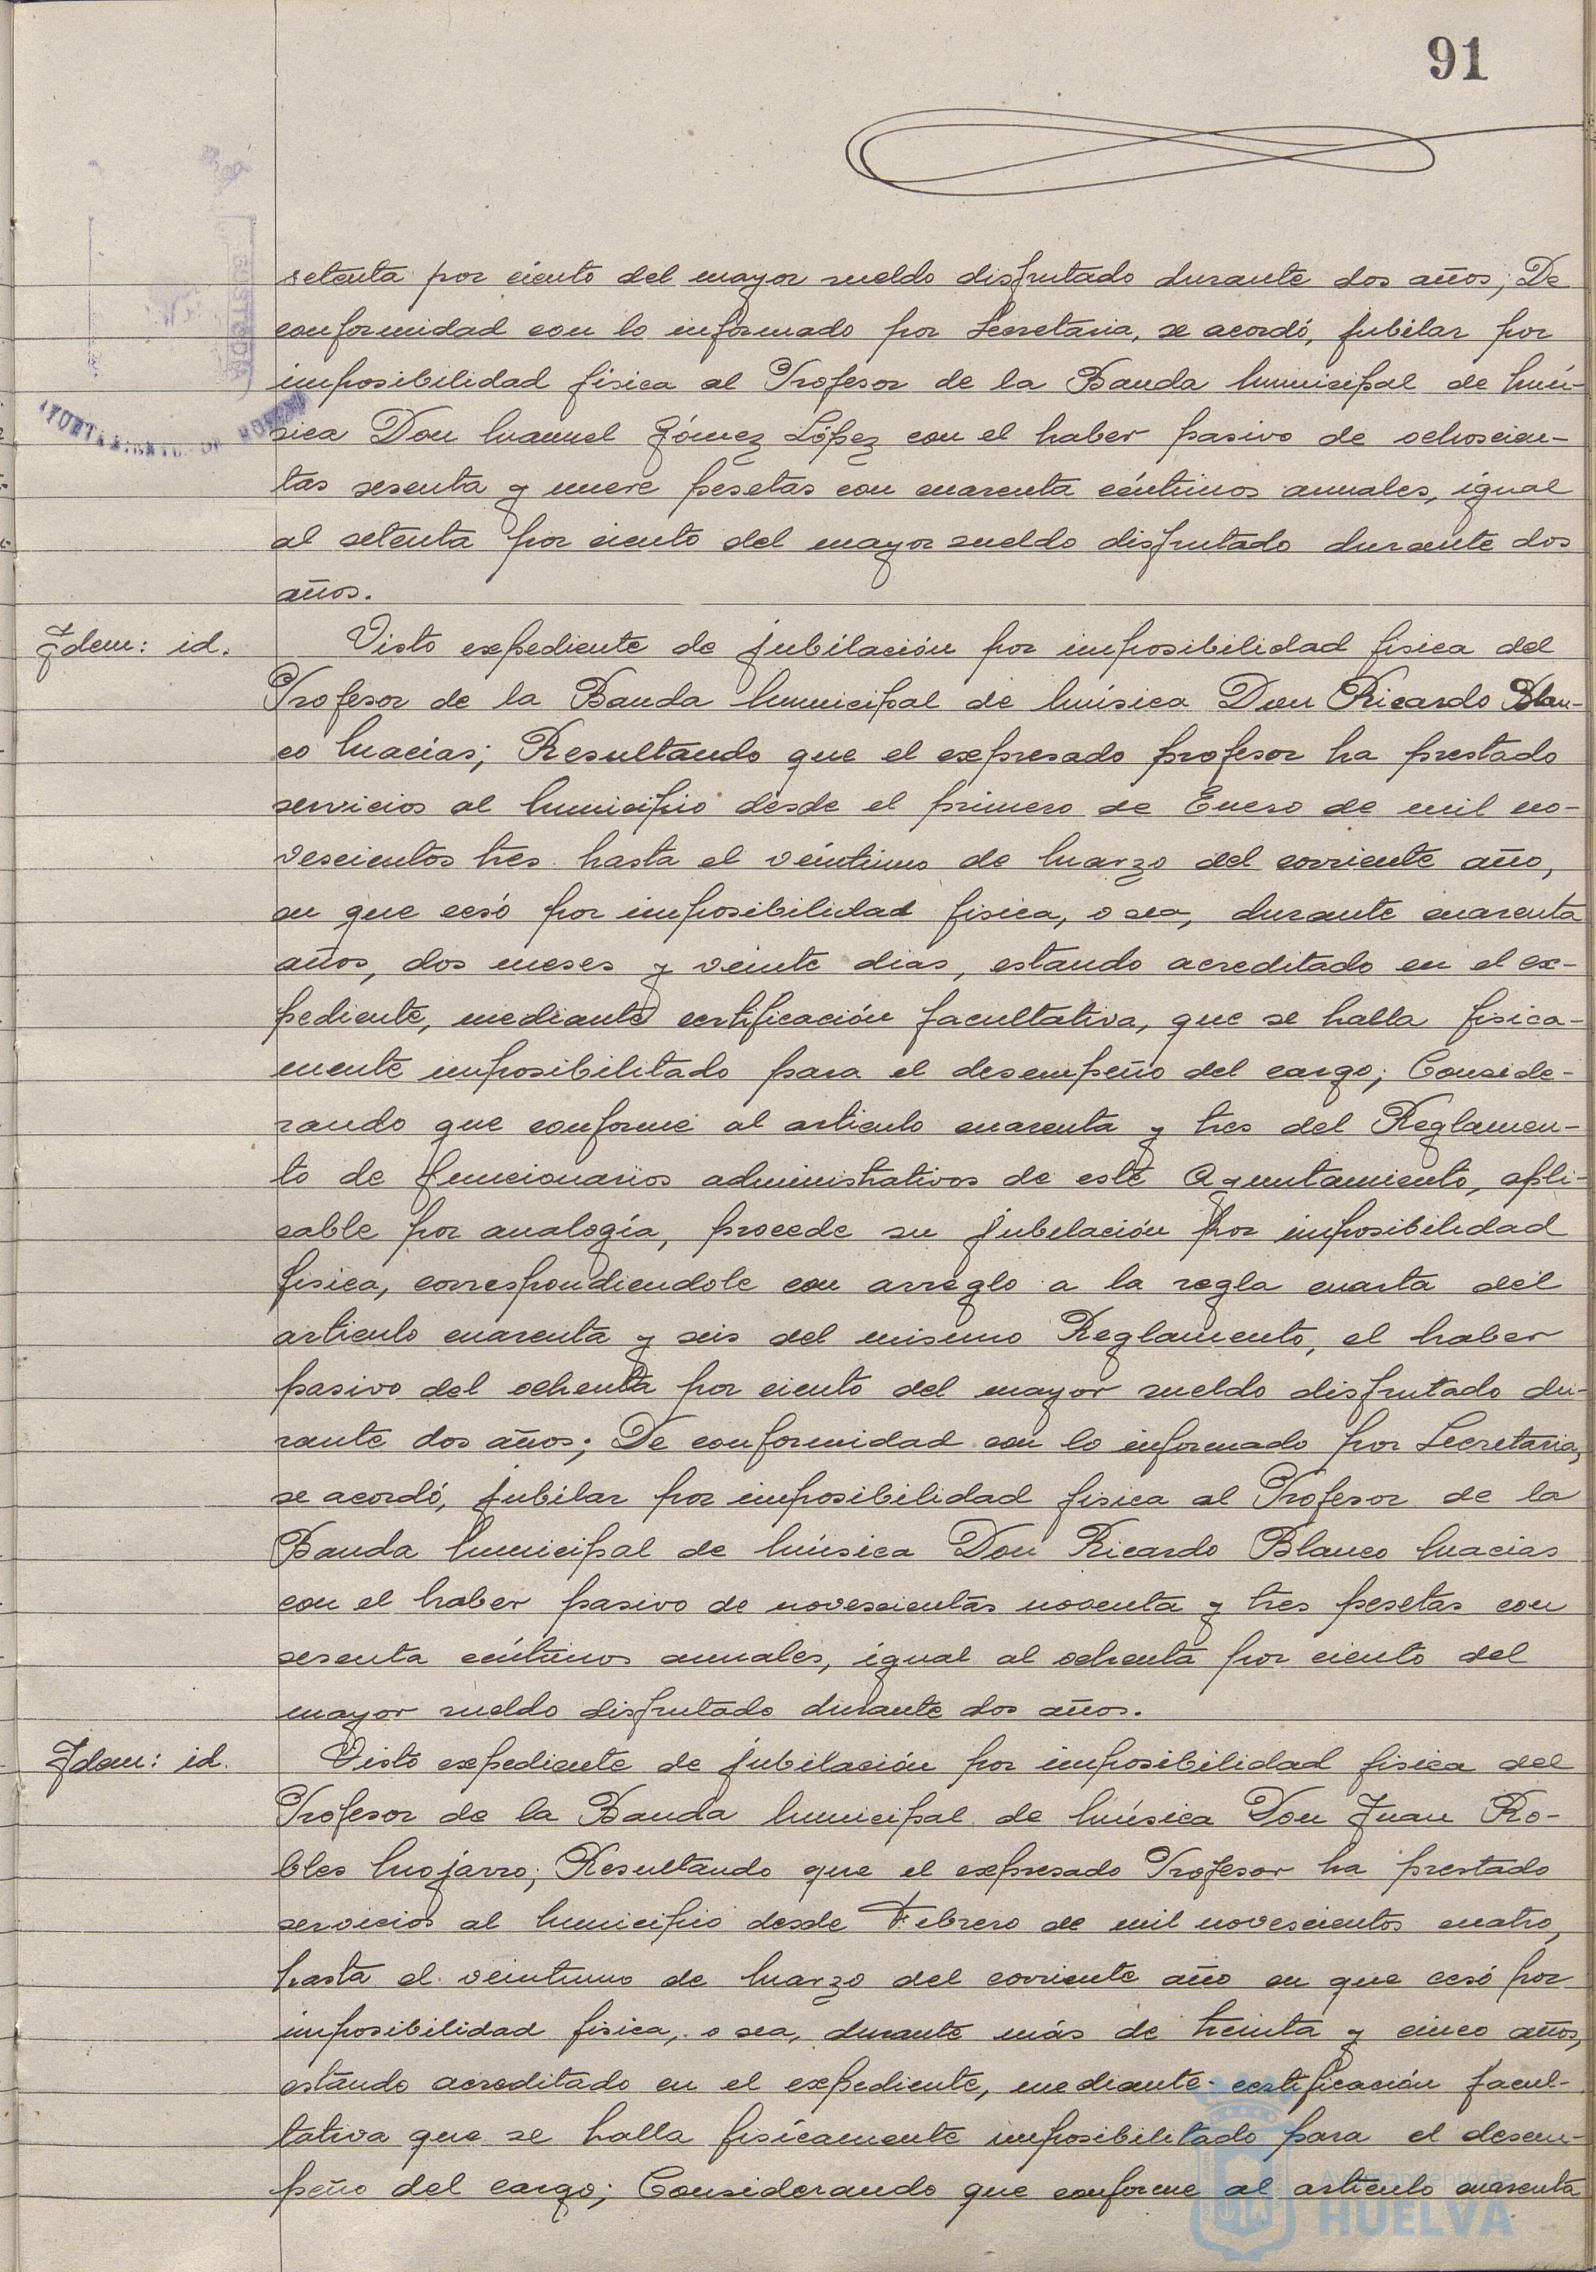 91
setenta por ciento del mayor sueldo disfrutado durante dos años; De
conformidad con lo informado por Secretaria, se acordó, jubilar por
imposibilidad fisica al Profesor de la Banda Municipal de Mú-
sica Don Manuel Gómez López con el haber pasivo de ochoscien-
tas sesenta y nueve pesetas con cuarenta céntimos anuales, igual
al setenta por ciento del mayor sueldo disfrutado durante dos
años.
Idem: id. Visto expediente de jubilación por imposibilidad fisica del
Profesor de la Banda Municipal de Música Don Ricardo Blan-
co Macías; Resultando que el expresado profesor ha prestado
servicios al Municipio desde el primero de Enero de mil no-
vescientos tres hasta el veintiuno de Marzo del corriente año,
en que cesó por imposibilidad fisica, o sea, durante cuarenta
años, dos meses y veinte dias, estando acreditado en el ex-
pediente, mediante certificación facultativa, que se halla fisica-
mente imposibilitado para el desempeño del cargo; Conside-
rando que conforme al articulo cuarenta y tres del Reglamen-
to de funcionarios administrativos de este Ayuntamiento, apli-
cable por analogía, procede su jubilación por imposibilidad
fisica, correspondiendole con arreglo a la regla cuarta del
articulo cuarenta y seis del mismo Reglamento, el haber
pasivo del ochenta por ciento del mayor sueldo disfrutado du-
rante dos años; De conformidad con lo informado por Secretaria,
se acordó, jubilar por imposibilidad fisica al Profesor de la
Banda Municipal de Música Don Ricardo Blanco Macias
con el haber pasivo de novescientas noventa y tres pesetas con
sesenta céntimos anuales, igual al ochenta por ciento del
mayor sueldo disfrutado durante dos años.
Idem: id. Visto expediente de jubilación por imposibilidad fisica del
Profesor de la Banda Municipal de Música Don Juan Ro-
bles Mojarro; Resultando que el expresado Profesor ha prestado
servicios al Municipio desde Febrero de mil novescientos cuatro,
hasta el veintiuno de Marzo del corriente año en que cesó por
imposibilidad fisica, o sea, durante más de treinta y cinco años,
estando acreditado en el expediente, mediante certificación facul-
tativa que se halla fisícamente imposibilitado para el desem-
peño del cargo; Considerando que conforme al articulo cuarenta
Ayuntamiento de
HUELVA